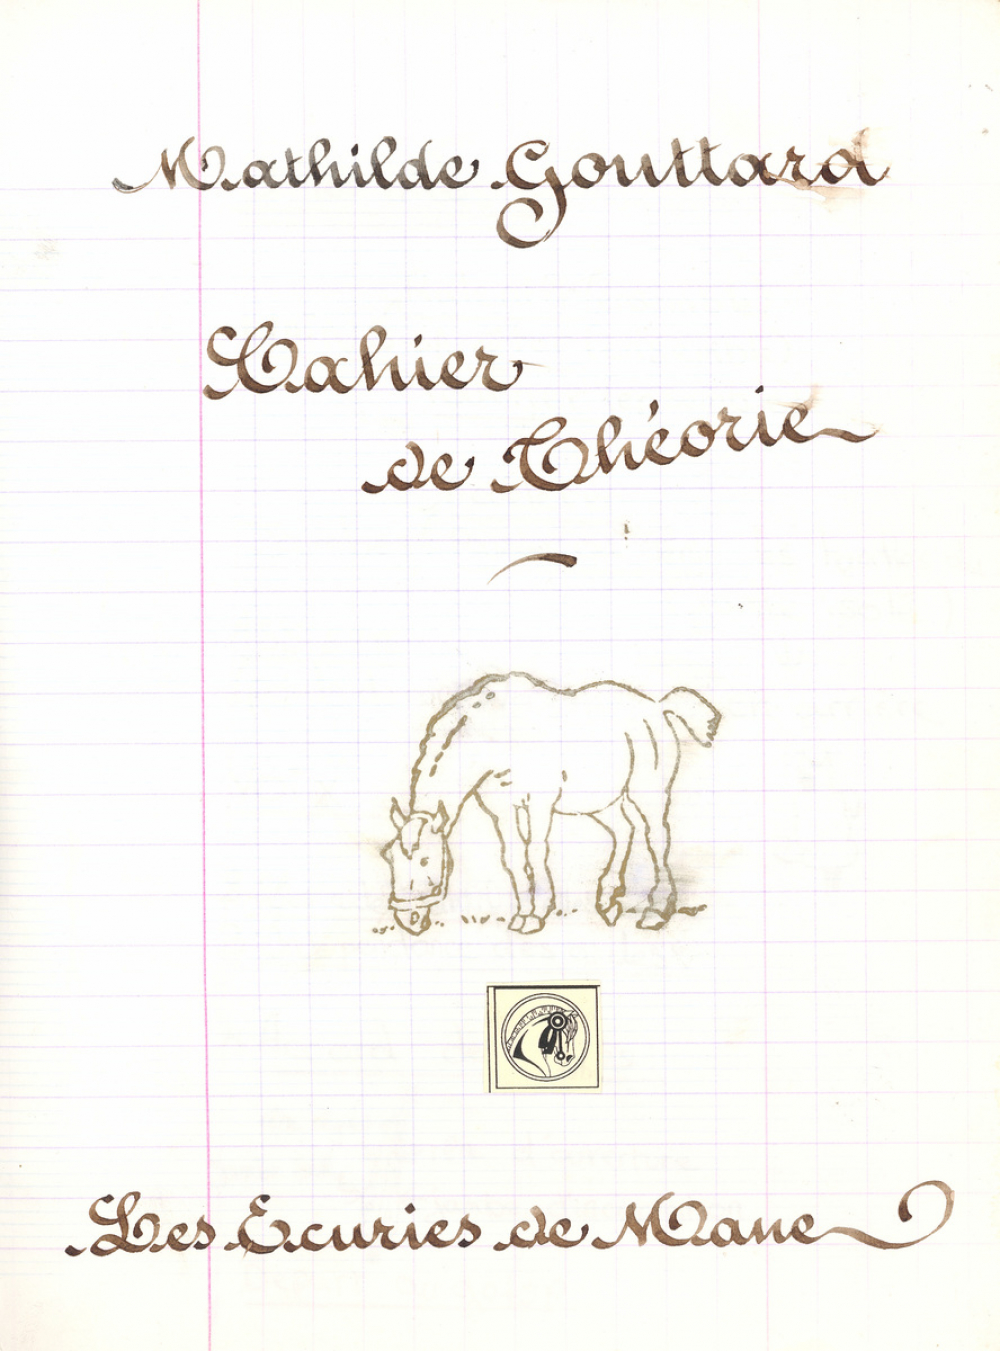 Mathilde Gouttard
Cahier
de Théorie
Les Écuries de Mane